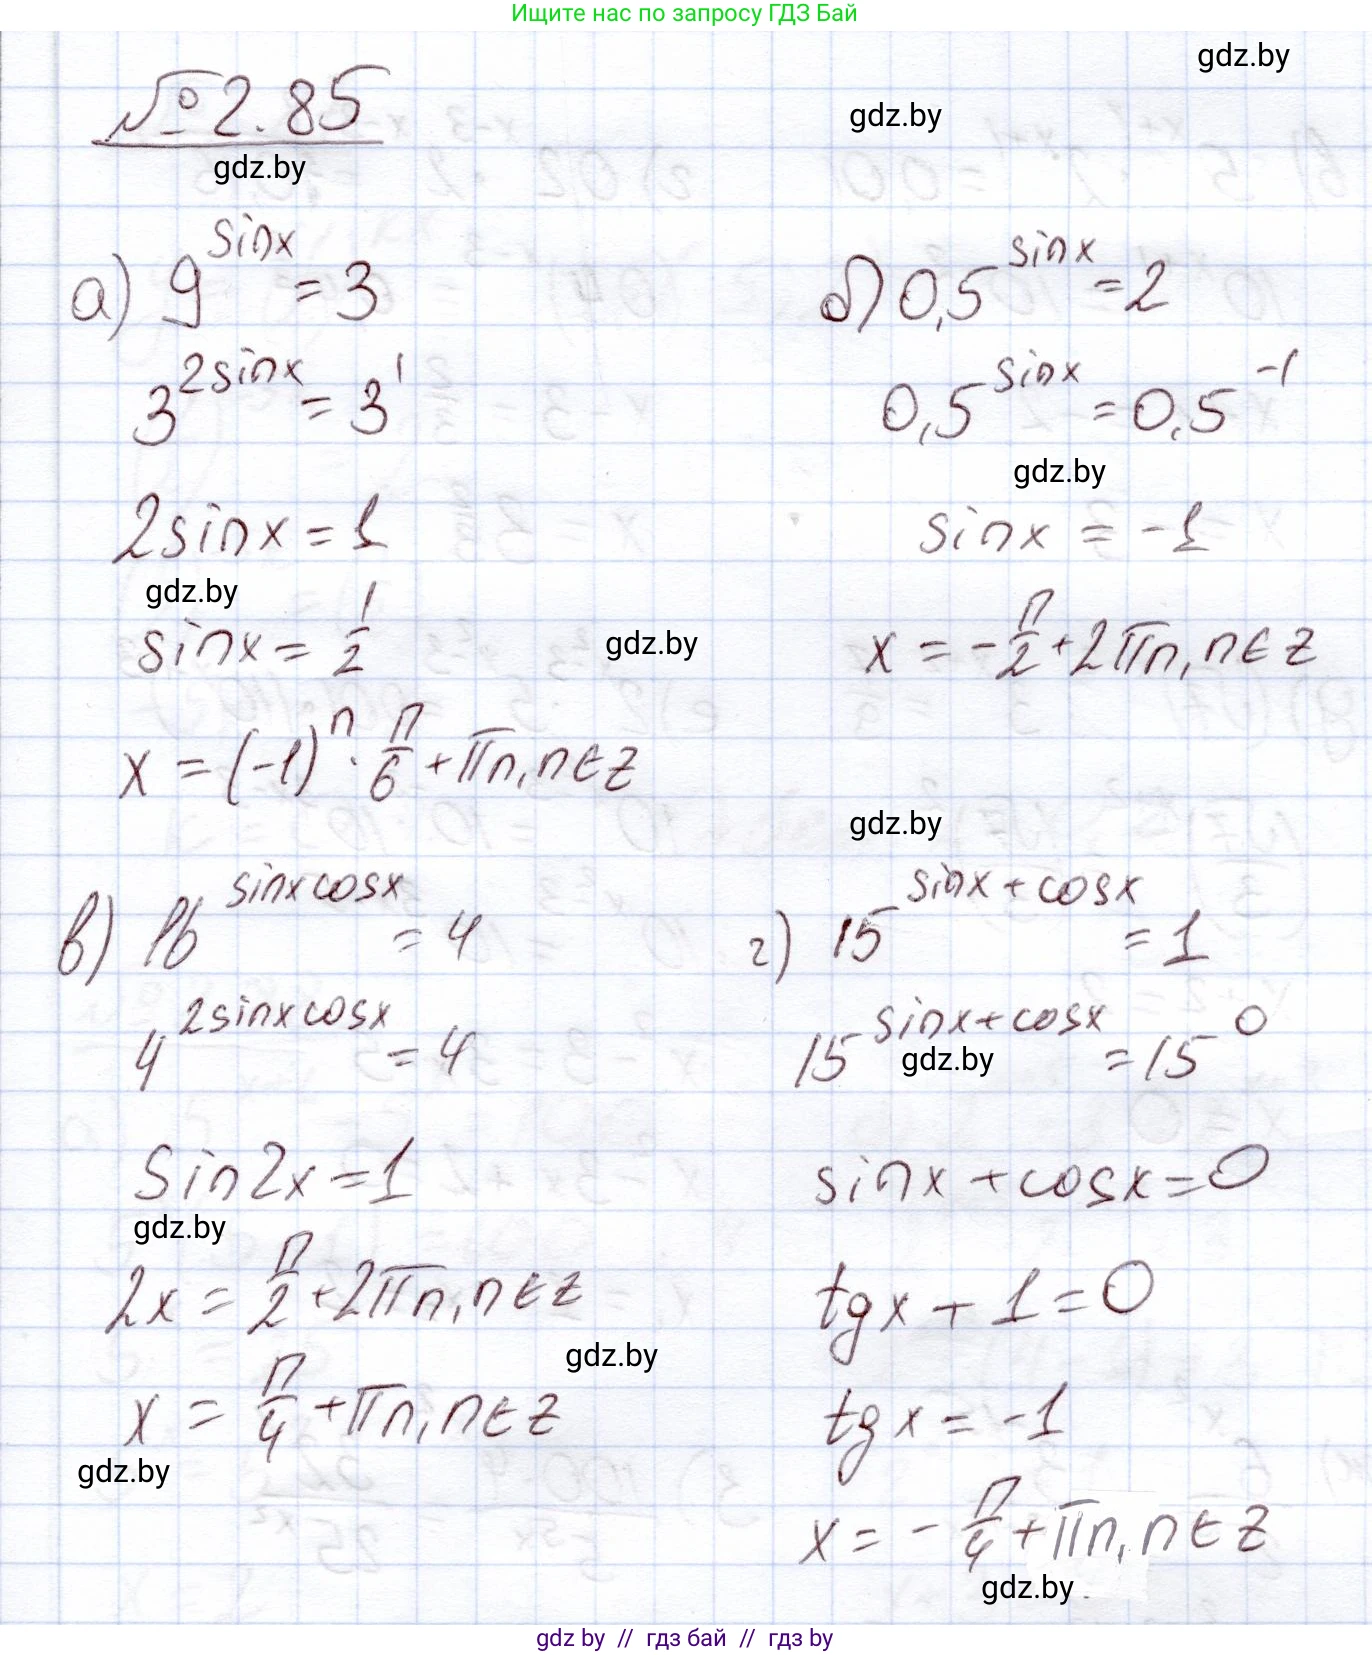 Ищите нас по запросу ГДЗ Бай
gdz.by
gdz.by
№ 2.85
gdz.by
а) 9^(sinx) = 3
3^(2sinx) = 3^1
2sinx = 1
gdz.by
sinx = 1/2
gdz.by
x = (-1)^n · π/6 + πn, n∈Z
б) 0,5^(sinx) = 2
0,5^(sinx) = 0,5^(-1)
gdz.by
sinx = -1
x = -π/2 + 2πn, n∈Z
gdz.by
в) 16^(sinxcosx) = 4
4^(2sinxcosx) = 4
sin2x = 1
gdz.by
2x = π/2 + 2πn, n∈Z
gdz.by
x = π/4 + πn, n∈Z
gdz.by
г) 15^(sinx+cosx) = 1
15^(sinx+cosx) = 15^0
gdz.by
sinx + cosx = 0
tgx + 1 = 0
tgx = -1
x = -π/4 + πn, n∈Z
gdz.by
gdz by // гдз бай // gdz by